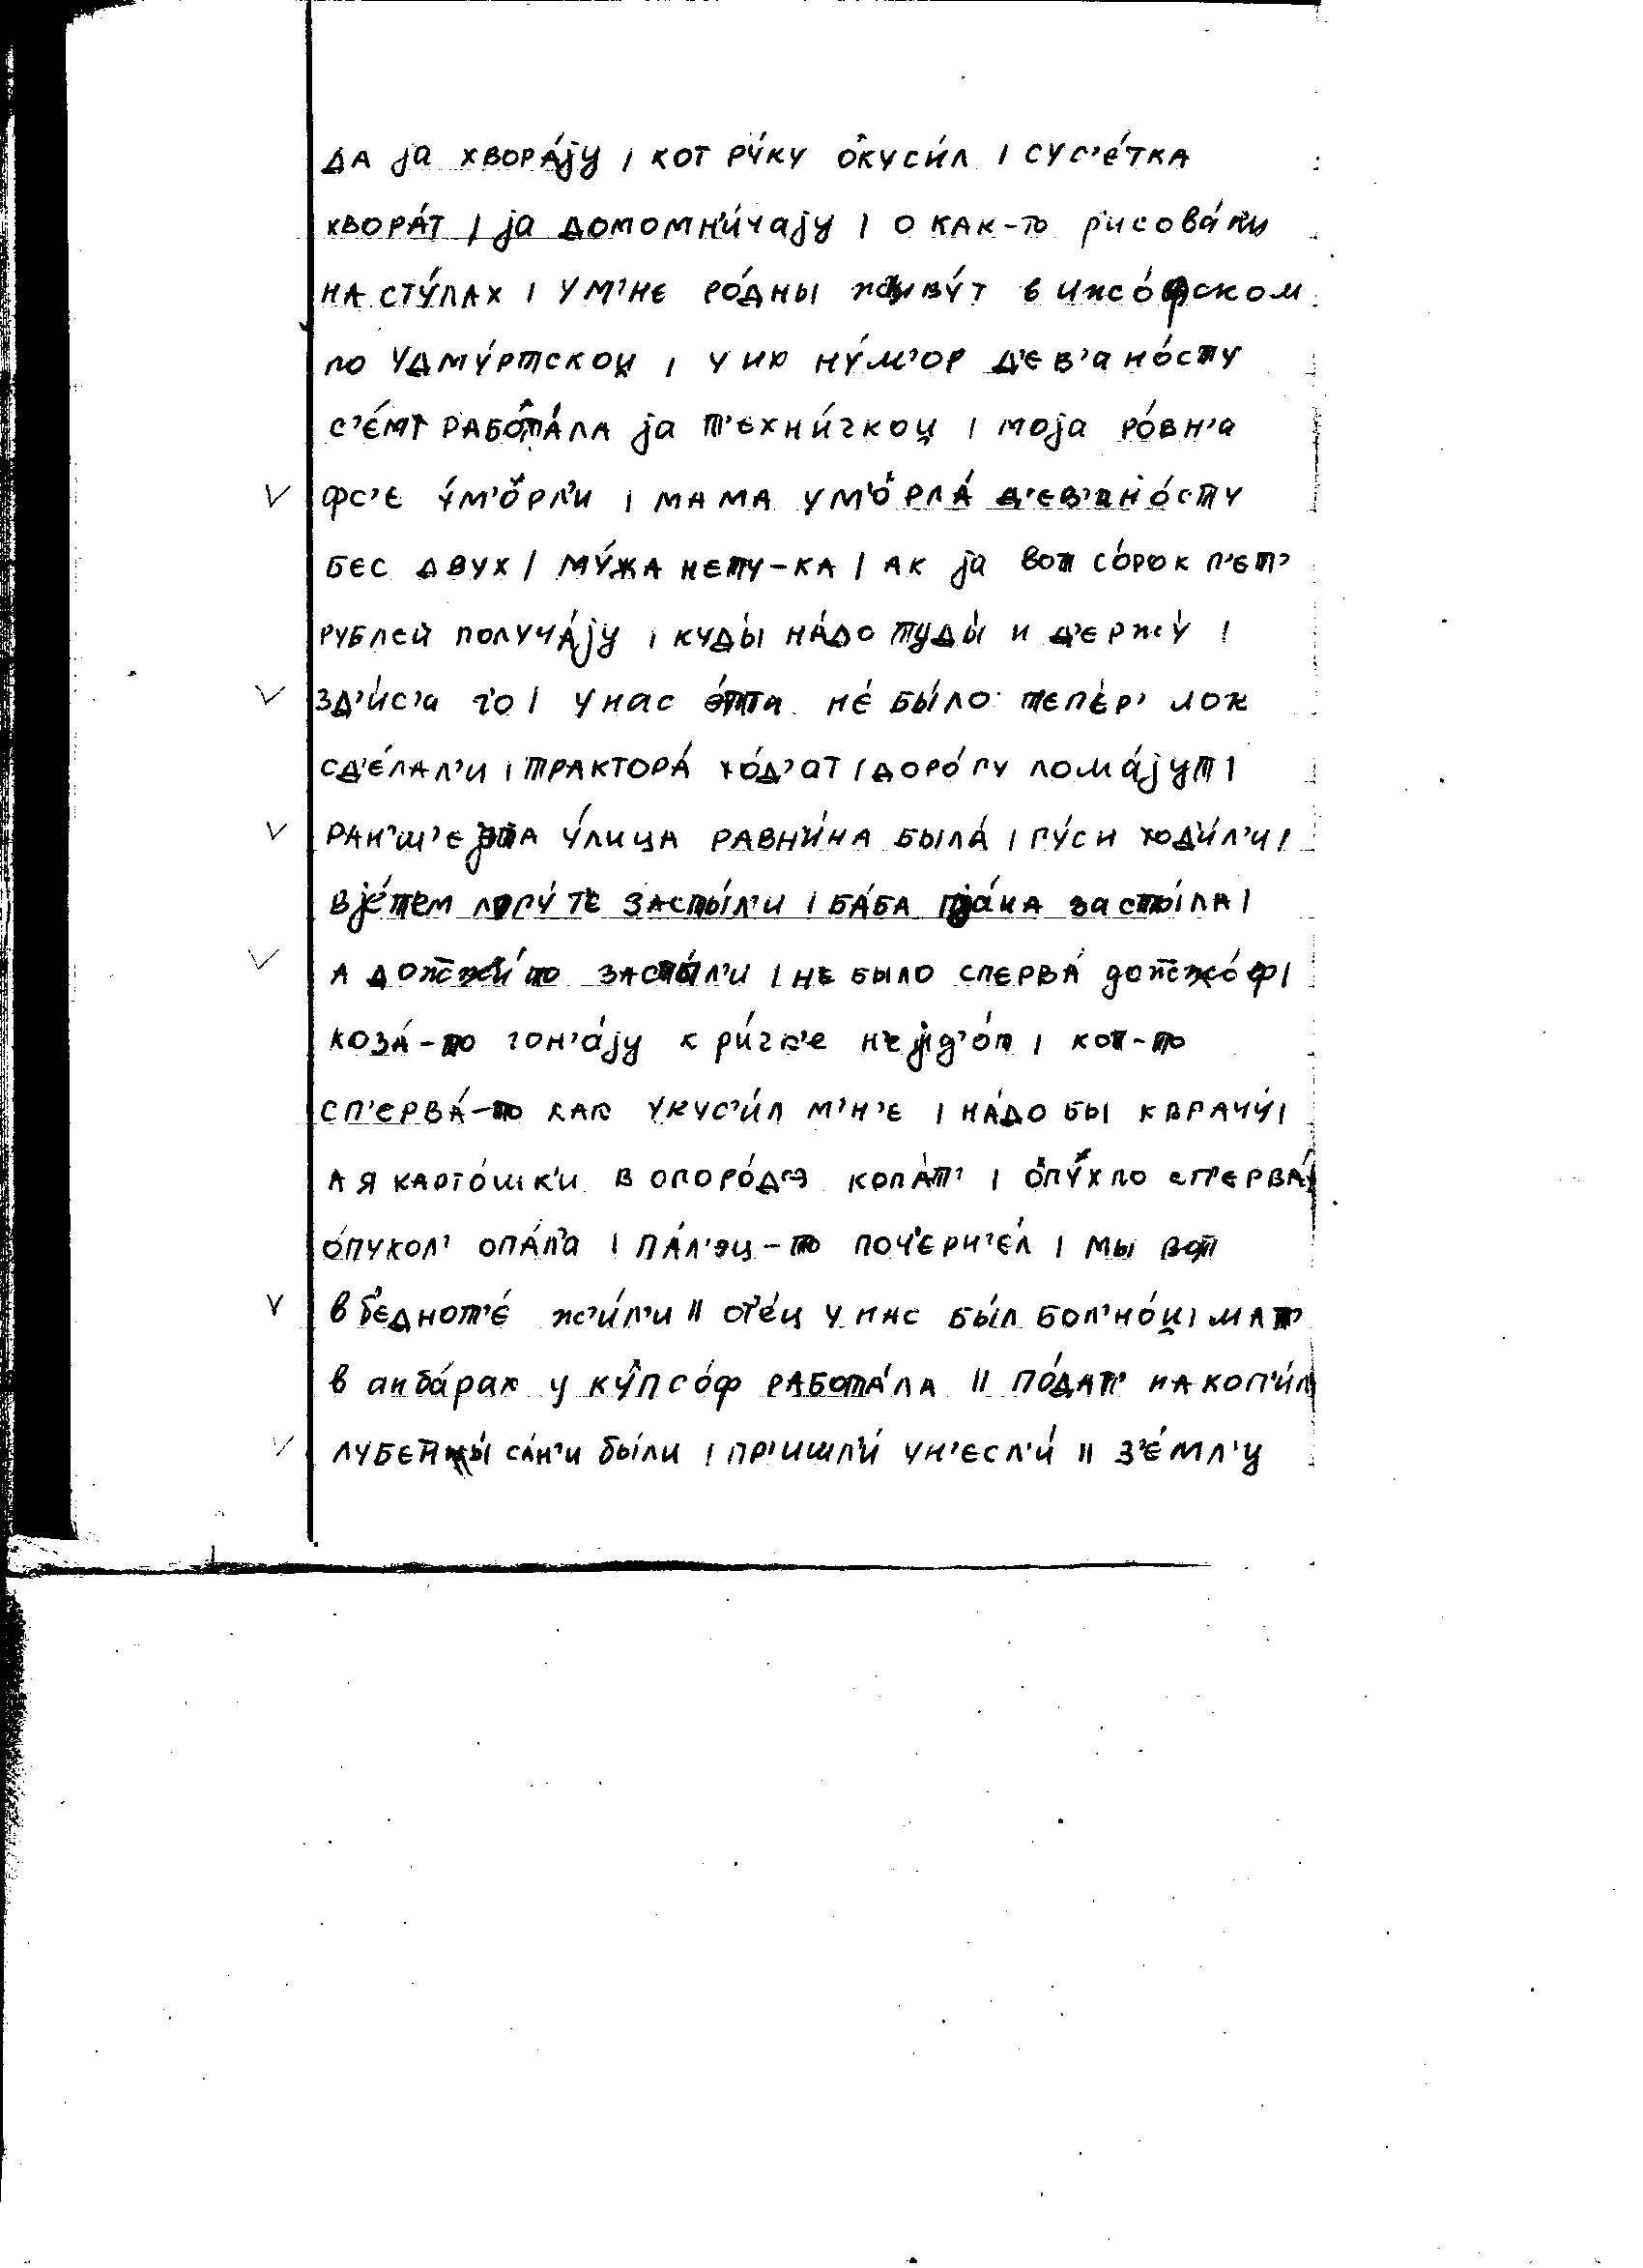 ДА ја ХВОРА́јУ | КОТ РУ́КУ О̂КУСИ́Л | СУС'Е́ТКА
ХВОРА́Т | ја ДОМОМН'И́ЧАјУ | О КАК-ТО р'исова́ли
НА СТУ́ЛАХ | У М'НЕ РО́ДНЫ живу́т в ижо́фском
по УДМУ́РТСКОЏ | У ИХ НУ́М'ОР Д'ЕВ'аНО́СТУ
С'Е́МТ РАБО̂ТА́ЛА ја Т'ЕХНИ́ЧКОЏ | моја РО́ВН'а
ФС'Е У́М'О̂РЛ'И | МАМА УМ'О̂РЛА́ Д'ЕВ'аНО́СТУ
БЕС ДВУХ | МУ́ЖА НЕТУ-КА | АК ја вот СО́РОК П'ЕТ'
РУБЛЕЙ ПОЛУЧА́јУ | КУДЫ́ НА́ДО ТУДЫ́ И Д'ЕРЖУ́ |
ЗД'И́С'а то | У НАС э́тта НЕ́ БЫ́ЛО ТЕПЕ́Р' лок
СД'Е́ЛАЛ'И | ТРАКТОРА́ ХО́Д'аТ | ДОРО́ГУ ЛОМА́јУТ |
РАН'Ш'Е эта У́ЛИЦА РАВНИ́НА БЫЛА́ | ГУ́СИ ХОДИ́Л'И |
Вје́тем ЗАСТЫ́Л'И | БА́БА застЫ́ЛА |
А ДОЖЖИ́ то ЗАСТЫ́Л'И | НЕ БЫЛО СПЕРВА́ дожжо́ф |
КОЗА́-то гон'а́јУ к ри́чк'е не јид'о́т | кот-то
СП'ЕРВА́-то КАК УКУС'И́Л М'Н'Е | НА́ДО БЫ К ВРАЧУ́ |
А Я КАРТО́ШК'И В ОГОРО́Д'Э КОПА́Т' | О̂ПУ́ХЛО СП'ЕРВА́ |
О́ПУХОЛ' ОПА́Л'а | ПА́Л'ЭЦ-ТО ПОЧ'ЕРН'Е́Л | МЫ ВОТ
в б'ЕДНОТ'Е́ ж'и́л'и || ОТ'Е́Ц У НАС БЫ́Л БОЛ'НО́Џ | МАТ'
в анба́рах у КУ̂ПСО́Ф РАБОТА́ЛА || ПО́ДАТ' НАКОП'И́Л
ЛУБЕЙНЫ́ СА́Н'И бы́ли | ПР'ИШЛ'И́ УН'ЕСЛ'И́ || З'Е́МЛ'У